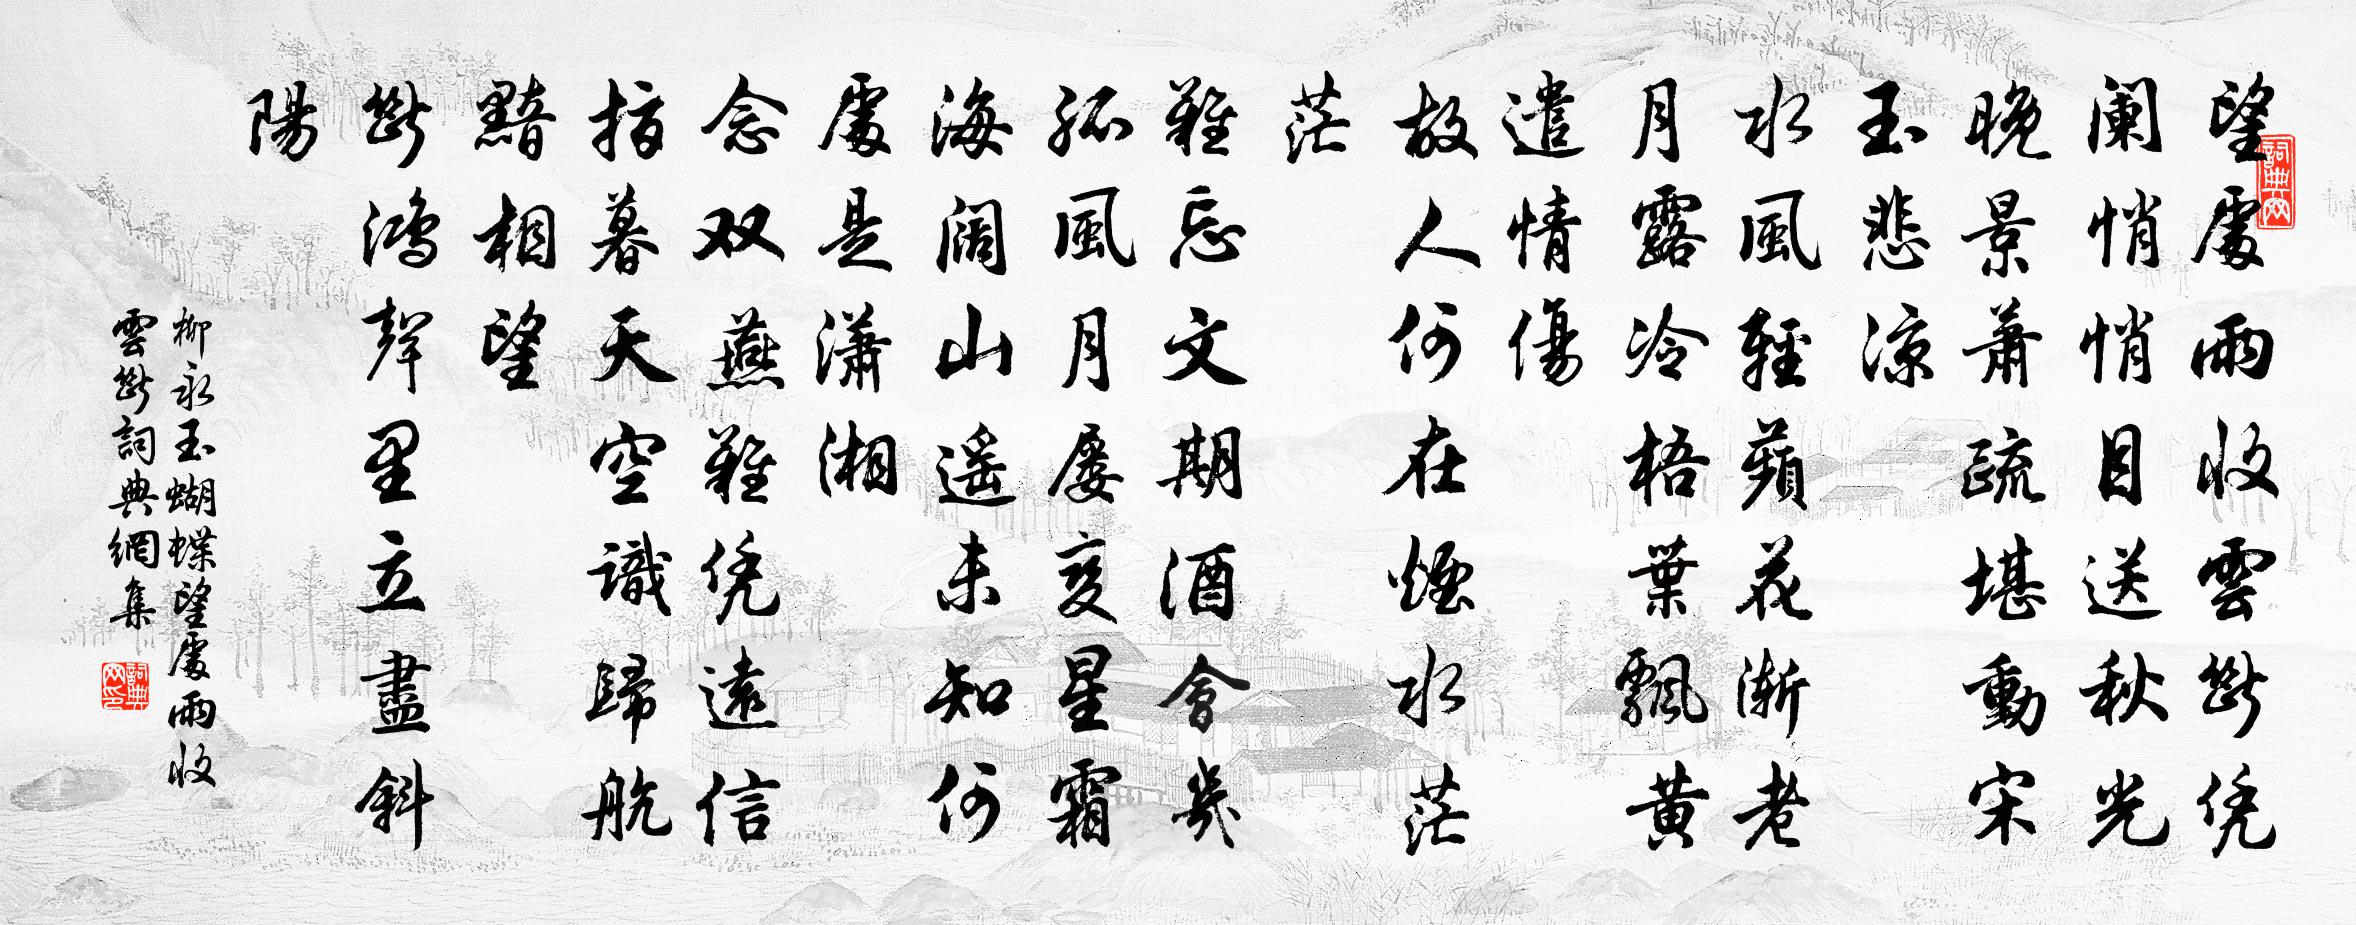 望處雨收雲斷凭
阑悄悄目送秋光
晚景蕭疏堪動宋
玉悲凉
水風輕蘋花渐老
月露冷梧葉飄黄
遣情傷
故人何在煙水茫
茫
難忘文期酒會幾
孤風月屡變星霜
海阔山遥未知何
處是潇湘
念双燕難凭遠信
指暮天空識歸航
黯相望
斷鴻聲里立盡斜
陽
柳永玉蝴蝶望處雨收
雲斷詞典網集
詞典网
詞典网印